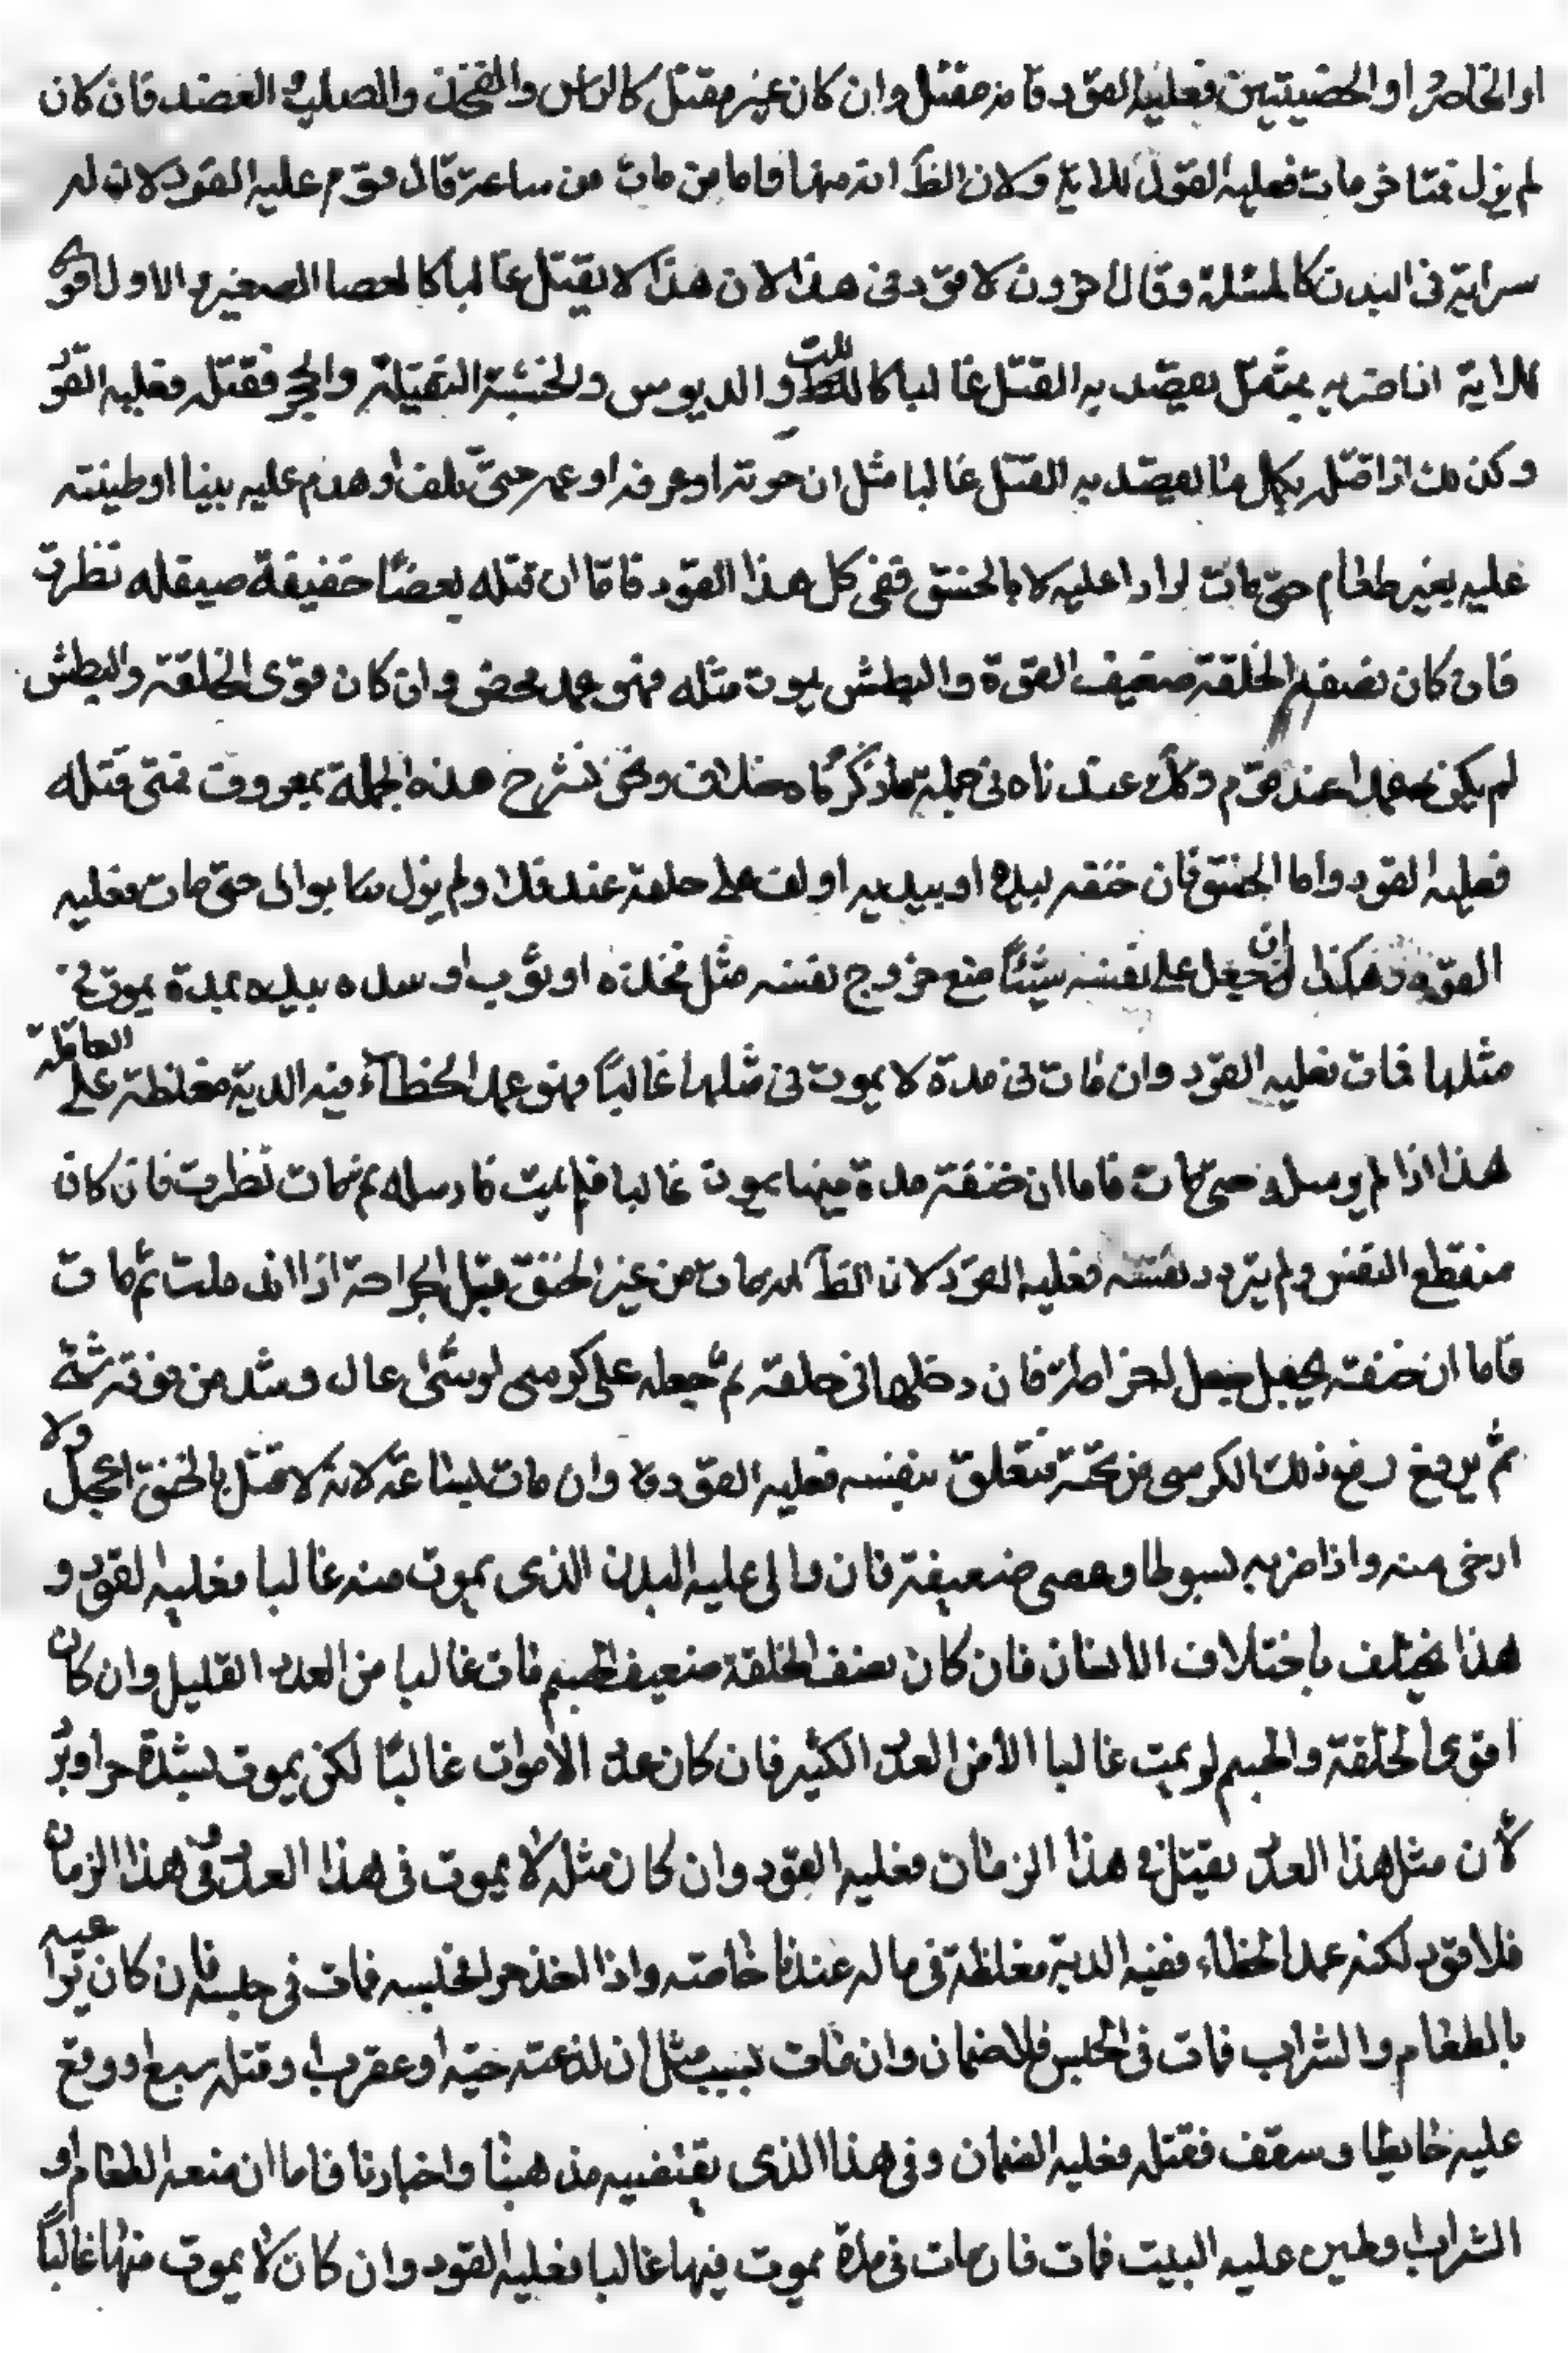 او الخاصرة او الخصيتين فعليه القود فا مز مقتل وان كان غير مقتل كالراس والفخذ والصلب والعضد فان كان
لم يزل ضمنا حتى مات فعليه القود للاية ولان الظآ انه منها فاما من مات من ساعته قال قوم عليه القود لان له
سراية فى البدن كالمثلة وقال اخرون لا قود فى هذا لان هذا لا يقتل غالبا كالعصا الصغيرة والاول اقوى
للاية اذا ضربه بمثقل يقصد به القتل غالبا كاللت والدبوس والخشبة الثقيلة والحجر فقتله فعليه القو
وكذلك اذا قتله بكل ما يقصد به القتل غالبا مثل ان حرقه او غرقه او غمه حتى تلف او هدم عليه بيتا او طينته
عليه بغير طعام حتى مات او والا عليه بالخنق ففى كل هذا القود فاما ان قتله بعصا خفيفة صيقله نظرت
فان كان نضو الخلقة ضعيف القوة والبطش يموت مثله فهو عمد محض وان كان قوى الخلقة والبطش
لم يكن عمدا عند قوم وكل عندناه فى جملة ما ذكرناه خلاف ونحن نشرح هذه الجملة بمعروف فمتى قتله
فعليه القود واما الخنق فان خنقه بيده او بيديه او لف على حلقه عند فلا ولم يزل كذا يوالى حتى مات فعليه
القود وهكذا ان جعل على نفسه شيئا منع خروج نفسه مثل مخدة او ثوب او سده بيده بمدة يموت فى
مثلها فمات فعليه القود وان مات فى مدة لا يموت فى مثلها غالبًا فهو عمد الخطآء فيه الدية مغلظة على العاقلة
هذا اذا لم يرسله حتى مات فاما ان خنقه مدة فيها يموت غالبا فلم يمت فارسله ثم مات نظرت فان كان
منقطع النفس ولم يتردد نفسه فعليه القود لان الظآ انه مات من غير الخنق قبل الجراحة اذا اندملت ثم مات
فاما ان خنقه بحبل جعل له خراطة فان دخلها فى حلقه ثم جعله على كرسى او شىء عال وشد من فوقه شدة
ثم يرفع رفع ذلك الكرسى من تحته فتعلق بنفسه فعليه القود فا وان مات لساعته لانه لا قتل بالخنق اعجل ولا
ارخى منه واذا ضربه بسوط او عصى ضعيفة فان والى عليه البدن الذى يموت منه غالبا فعليه القود و
هذا يختلف باختلاف الانسان فان كان نضو الخلقة ضعيف الجسم مات غالبا من العدد القليل وان كان
اقوى الخلقة والجسم لو يمت غالبا الا من العدد الكثير فان كان عدد الاموات غالبًا لكن يموت لشدة حر او برد
لأن مثل هذا العدد يقتل فى هذا الزمان فعليه القود وان كان مثله لا يموت فى هذا العدد وفى هذا الزمان
فلا قود لكنه عمد الخطاء ففيه الدية مغلظة فى ماله عندنا خاصته واذا اخذ حرا فحبسه فمات فى حبسه فان كان يراعيه
بالطعام والشراب فمات فى الحبس فلا ضمان وان مات بسبب مثل ان لدغته حيّة او عقرب او قتله سبع او وقع
عليه حايط او سقف فقتله فعليه الضمان وفى هذا الذى يقتضيه مذهبنا واخبارنا فاما ان منعه الطعام او
الشراب او طين عليه البيت فمات فان مات فى مدة يموت فيها غالبا فعليه القود وان كان لا يموت منها غالبًا